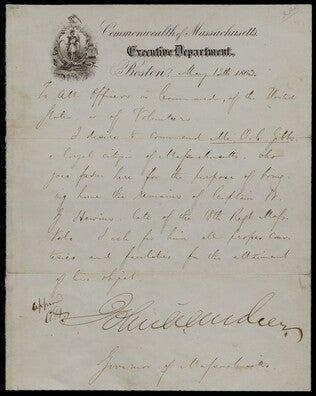 Commonwealth of Massachusetts.
Executive Department,
Boston, May 13th 1863.
To All Officers in Command, of the United
States or of Volunteers
I desire to commend Mr. O. C. Gibbs
a loyal citizen of Massachusetts. who
goes for the purpose of bring-
ing home the remains of Captain W.
late of the 18th Regt Mass.
Vols. I ask for him all proper cour-
tesies and facilities for the attainment
of this object.
John A. Andrew
Governor of Massachusetts